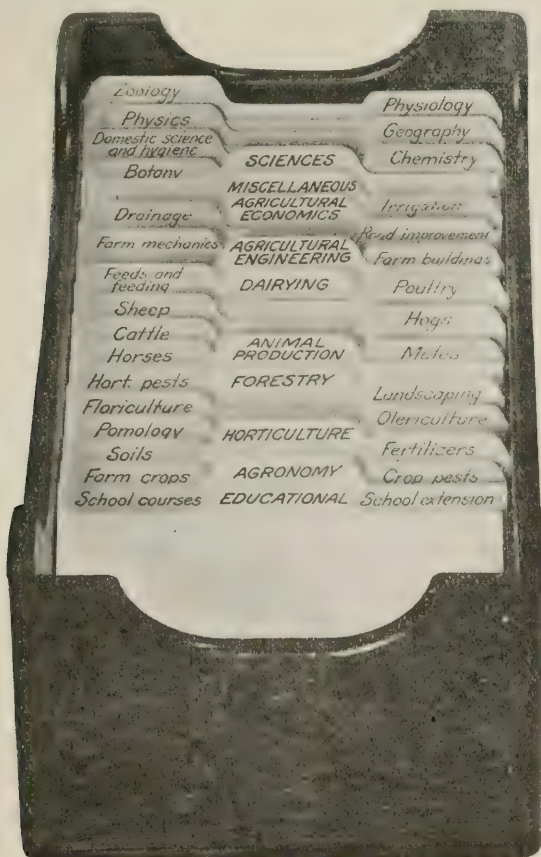 Zoology
Physics
Domestic science
and hygiene
Botany
Drainage
Farm mechanics
Feeds and
feeding
Sheep
Cattle
Horses
Hort. pests
Floriculture
Pomology
Soils
Farm crops
School courses
SCIENCES
MISCELLANEOUS
AGRICULTURAL
ECONOMICS
AGRICULTURAL
ENGINEERING
DAIRYING
ANIMAL
PRODUCTION
FORESTRY
HORTICULTURE
AGRONOMY
EDUCATIONAL
Physiology
Geography
Chemistry
Irrigation
Road improvement
Farm buildings
Poultry
Hogs
Mules
Landscaping
Olericulture
Fertilizers
Crop pests
School extension